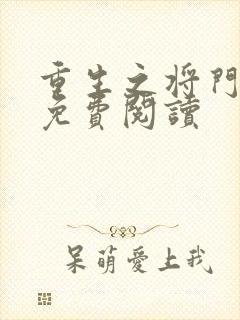 重生之将門
免費閱讀
呆萌愛上我